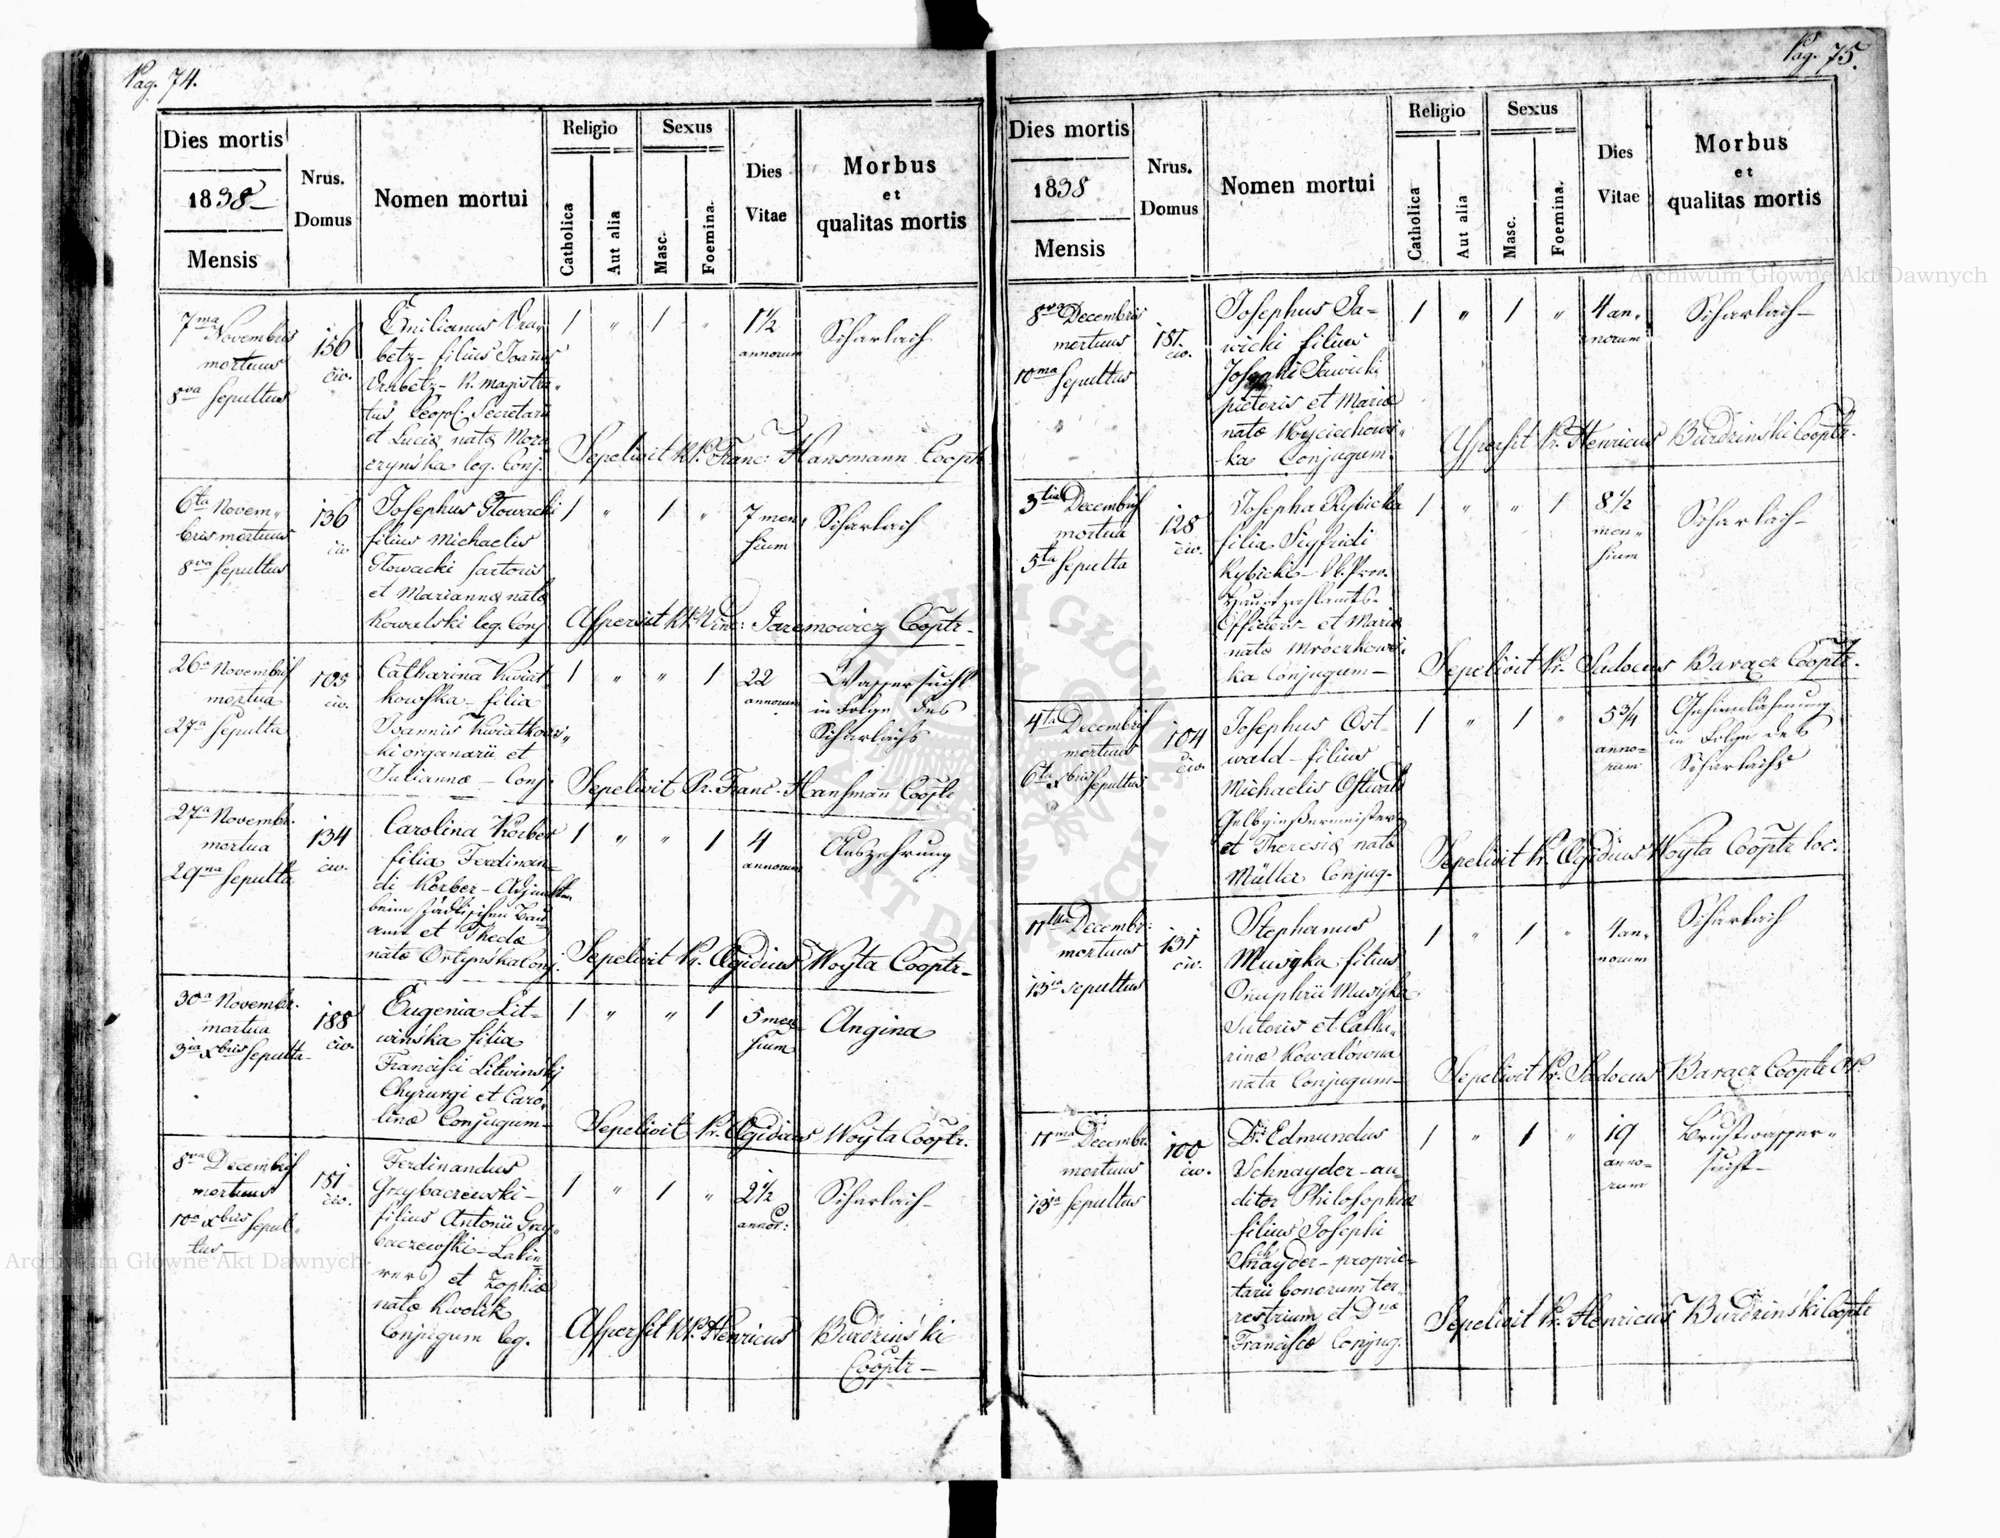 Pag. 74.
Dies mortis
1838
Mensis
Nrus.
Domus
Nomen mortui
Religio
Catholica
Aut alia
Sexus
Masc.
Foemina.
Dies
Vitae
Morbus
et
qualitas mortis
7ma Novembris
mortuus
8va sepultus
156
civ.
Emilianus Vra-
betz filius Joannis
Vrabetz R. magistra-
tus Leopol. Secretarii
et Luciæ natæ
leg. Conj.
1 " 1 "
1½
annorum
Scharlach
Sepelivit RP. Franc: Hansmann Cooptr
6ta Novem-
bris mortuus
8va sepultus
136
civ
Josephus Głowacki
filius Michaelis
Głowacki sartoris
et Mariannæ natæ
Kowalski leg. Conj.
1 " 1 "
7 men-
sium
Scharlach
Aspersit Jaremowicz Cooptr
26a Novembris
mortua
27a sepulta
105
civ.
Catharina Kwiat-
kowska filia
Joannis Kwiatkows-
ki organarii et
Juliannæ Conj.
1 " " 1
22
annorum
Wassersucht
in Folge des
Scharlachs
Sepelivit Pr. Franc. Hansmann Cooptr
27a Novembr.
mortua
29na sepulta
134
civ.
Carolina Körber
filia Ferdinan-
di Körber Adjunkten
beim städtischen Bau-
amt et Theclæ
natæ Ortynska Conj.
1 " " 1
4
annorum
Auszehrung
Sepelivit Pr. Ægidius Woyta Cooptr
30a Novembr.
mortua
3ia Xbris sepulta
188
civ.
Eugenia Lit-
wińska filia
Francisci Litwiński
Chyrurgi et Caro-
linæ Conjugum
1 " " 1
5 men-
sium
Angina
Sepelivit Pr. Ægidius Woyta Cooptr.
8va Decembris
mortuus
10a Xbris sepul-
tus
181
civ.
Ferdinandus
Grzybaczewski
filius Antonii Grzy-
baczewski
et Zophiæ
natæ Kwolek
Conjugum leg.
1 " 1 "
2½
annor:
Scharlach
Aspersit RP. Henricus Burdziński
Cooptr
Pag. 75.
Dies mortis
1838
Mensis
Nrus.
Domus
Nomen mortui
Religio
Catholica
Aut alia
Sexus
Masc.
Foemina.
Dies
Vitae
Morbus
et
qualitas mortis
8va Decembris
mortuus
10ma sepultus
181.
civ.
Josephus Sa-
wicki filius
Josephi Sawicki
pictoris et Mariæ
natæ Woyciechows-
ka Conjugum
1 " 1 "
4 an-
norum
Scharlach
Aspersit Pr. Henricus Burdziński Cooptr.
3tia Decembris
mortua
5ta sepulta
128
civ.
Josepha Rybicka
filia Sigfridi
Rybicki
Officiers et Mariæ
natæ Mroczkows-
ka Conjugum
1 " " 1
8½
men-
sium
Scharlach
Sepelivit Pr. Sadocus Baracz Cooptr.
4ta Decembris
mortuus
6ta Xbris sepultus
104
civ.
Josephus Ost-
wald filius
Michaelis Ostwald
Gelbgießermeisters
et Theresiæ natæ
Müller Conjug.
1 " 1 "
5¾
anno-
rum
Gehirnlähmung
in Folge des
Scharlachs
Sepelivit Pr. Ægidius Woyta Cooptr loc.
11ma Decembr:
mortuus
13ia sepultus
131
civ.
Stephanus
Musyka filius
Onuphrii Musyka
Sutoris et Catha-
rinæ Kowalówna
nata Conjugum
1 " 1 "
4 an-
norum
Scharlach
Sepelivit Pr. Sadocus Baracz Cooptr
11ma Decembr.
mortuus
13a sepultus
100
civ.
Ds Edmundus
Schnayder au-
ditor Philosophiæ
filius Josephi
Schnayder proprie-
tarii bonorum ter-
restrium et Dnæ
Franciscæ Conjug.
1 " 1 "
19
anno-
rum
Brustwasser-
sucht
Sepelivit Pr. Henricus Burdziński Cooptr
Archiwum Główne Akt Dawnych
Archiwum Główne Akt Dawnych
ARCHIWUM GŁÓWNE AKT DAWNYCH